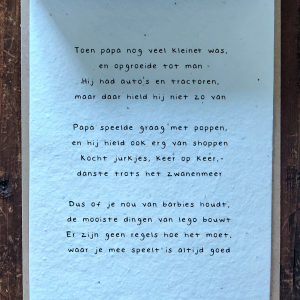 Toen papa nog veel kleiner was,
en opgroeide tot man
Hij had auto's en tractoren,
maar daar hield hij niet zo van
Papa speelde graag met poppen,
en hij hield ook erg van shoppen
Kocht jurkjes, keer op keer,
danste trots het zwanenmeer
Dus of je nou van barbies houdt,
de mooiste dingen van lego bouwt
Er zijn geen regels hoe het moet,
waar je mee speelt is altijd goed